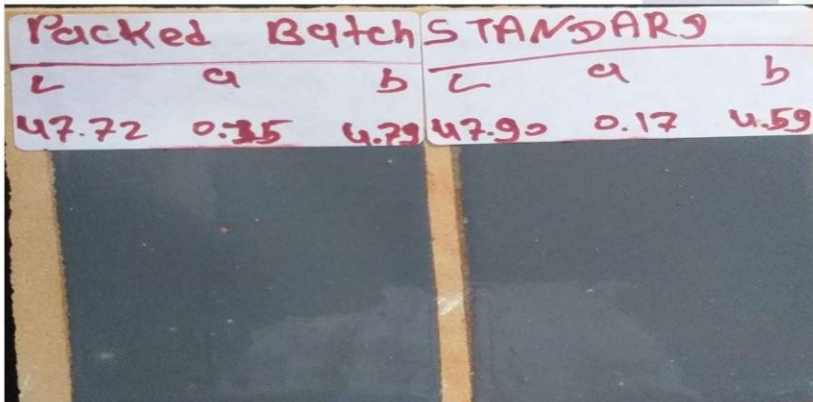 Packed Batch
L a b
47.72 0.35 4.79
STANDARD
L a b
47.90 0.17 4.59